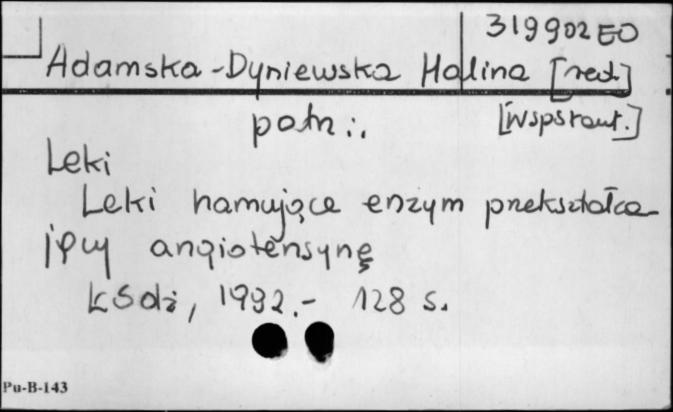 319902 EO
Adamska-Dyniewska Halina [red.]
patrz:. [Współaut.]
Leki
Leki hamujące enzym przekształca-
jący angiotensynę
Łódź, 1992.- 128 s.
Pu-B-143